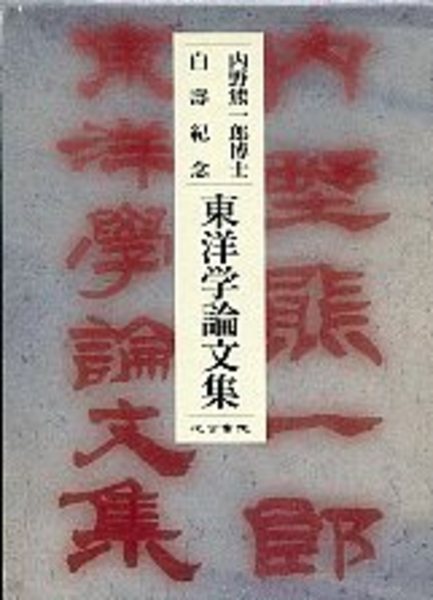 内野熊一郎
東洋學論文集
内野熊一郎博士
白壽紀念
東洋学論文集
汲古書院